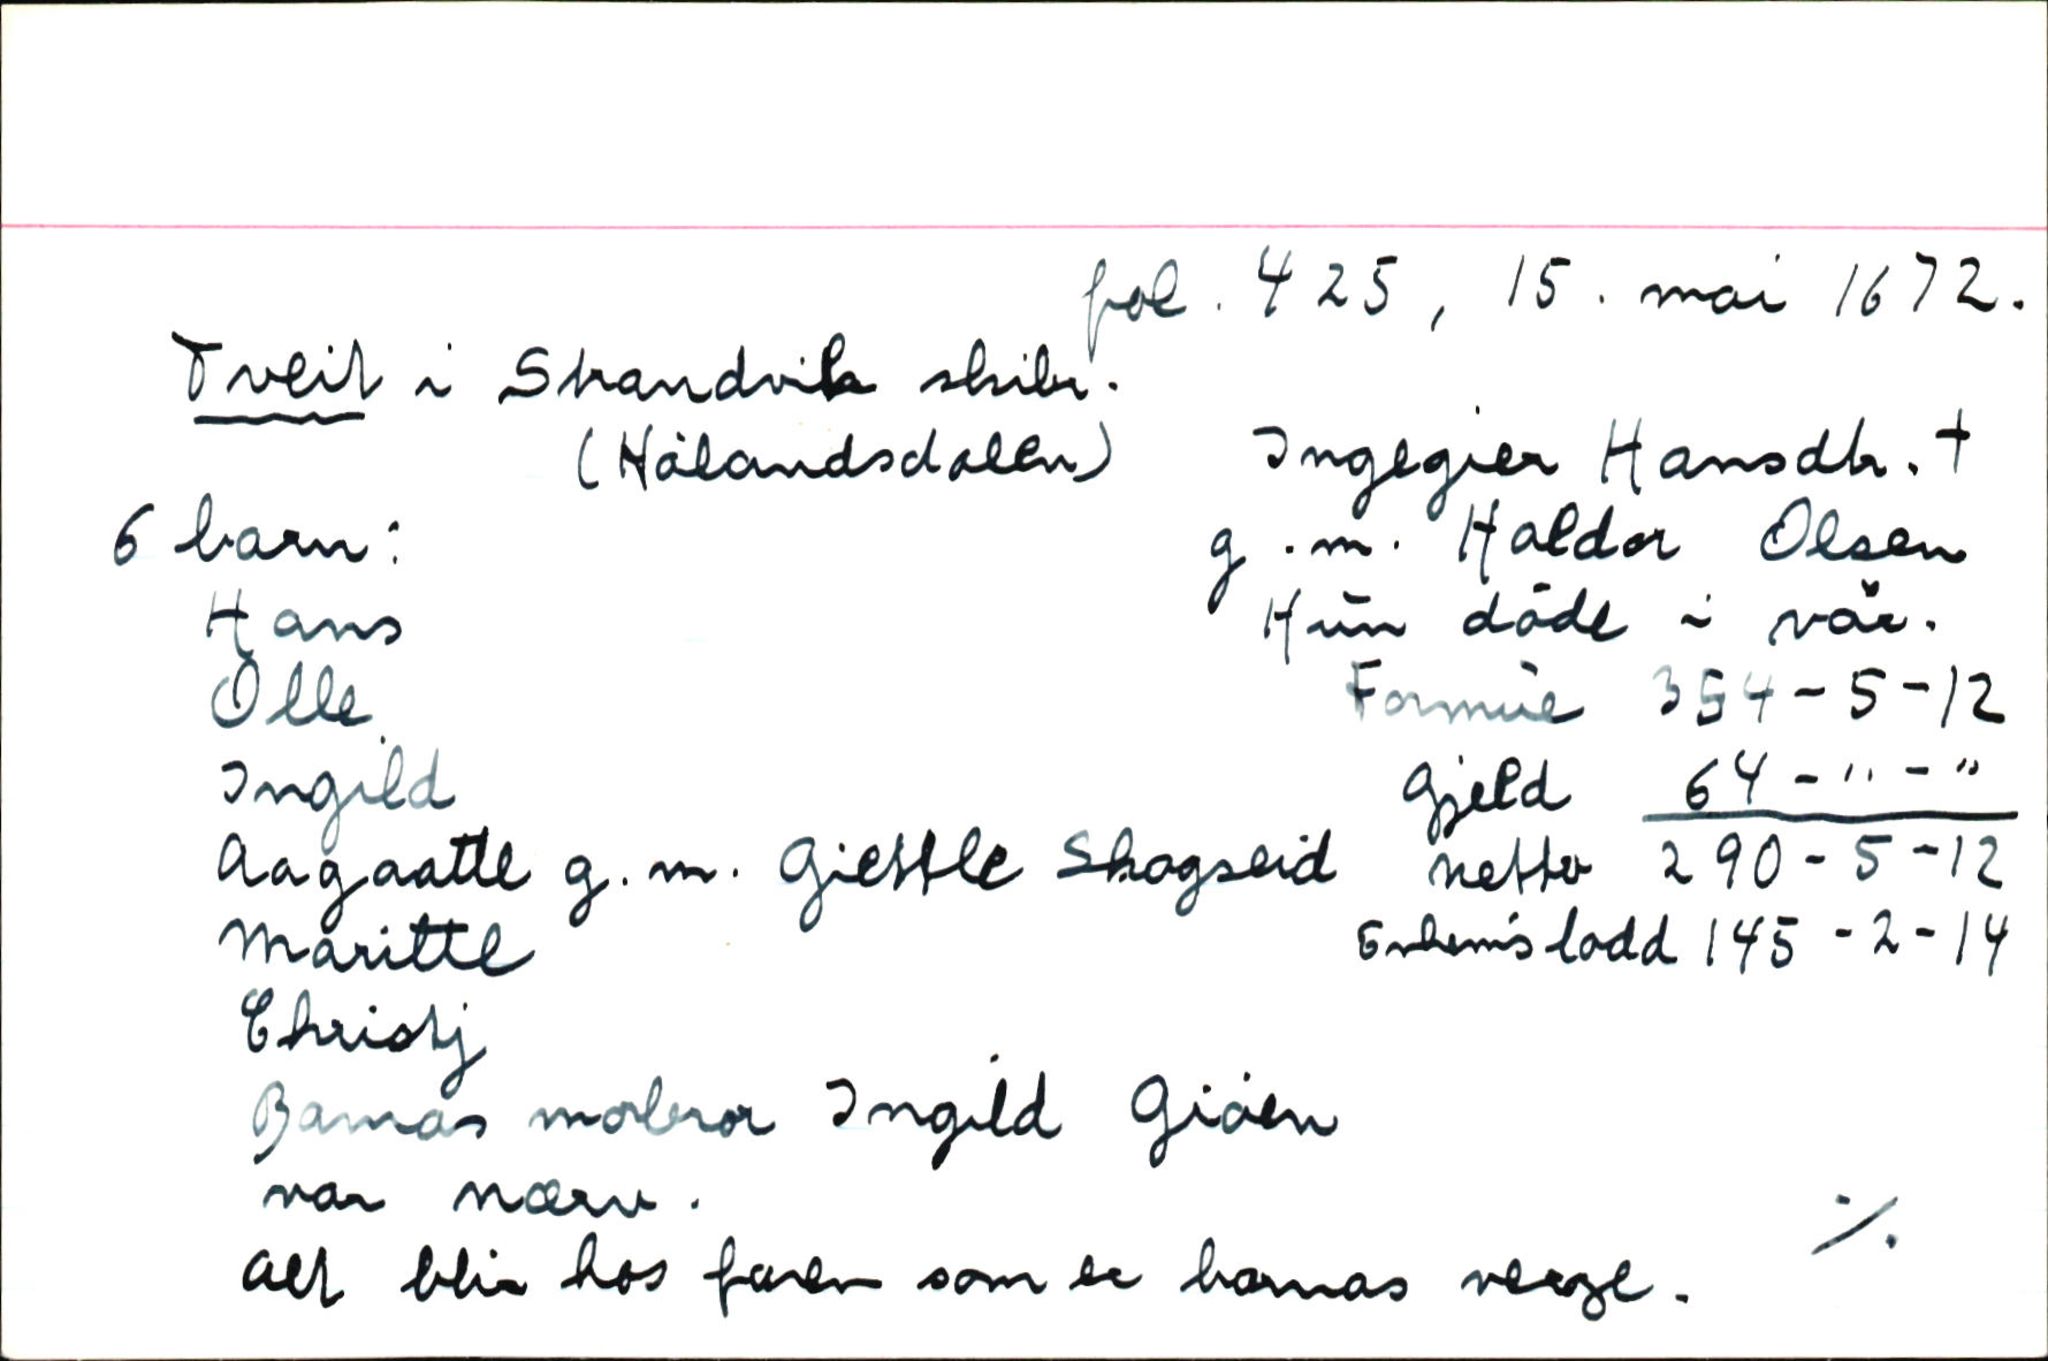 fol. 425, 15. mai 1672.
Tveit i Strandvik skibr.
(Hålandsdalen) Ingegier Hansdtr. †
6 barn: g.m. Haldor Olsen
Hans Hun døde i vår.
Olle Formue 354-5-12
Ingild Gjeld 64-"-"
Aagaatte g.m. Giettle Skogseid netto 290-5-12
Maritte Enkem's lodd 145-2-14
Christj
Barnas morbror Ingild Giöen
var nærv.
Alt blir hos faren som er barnas verge.
./.